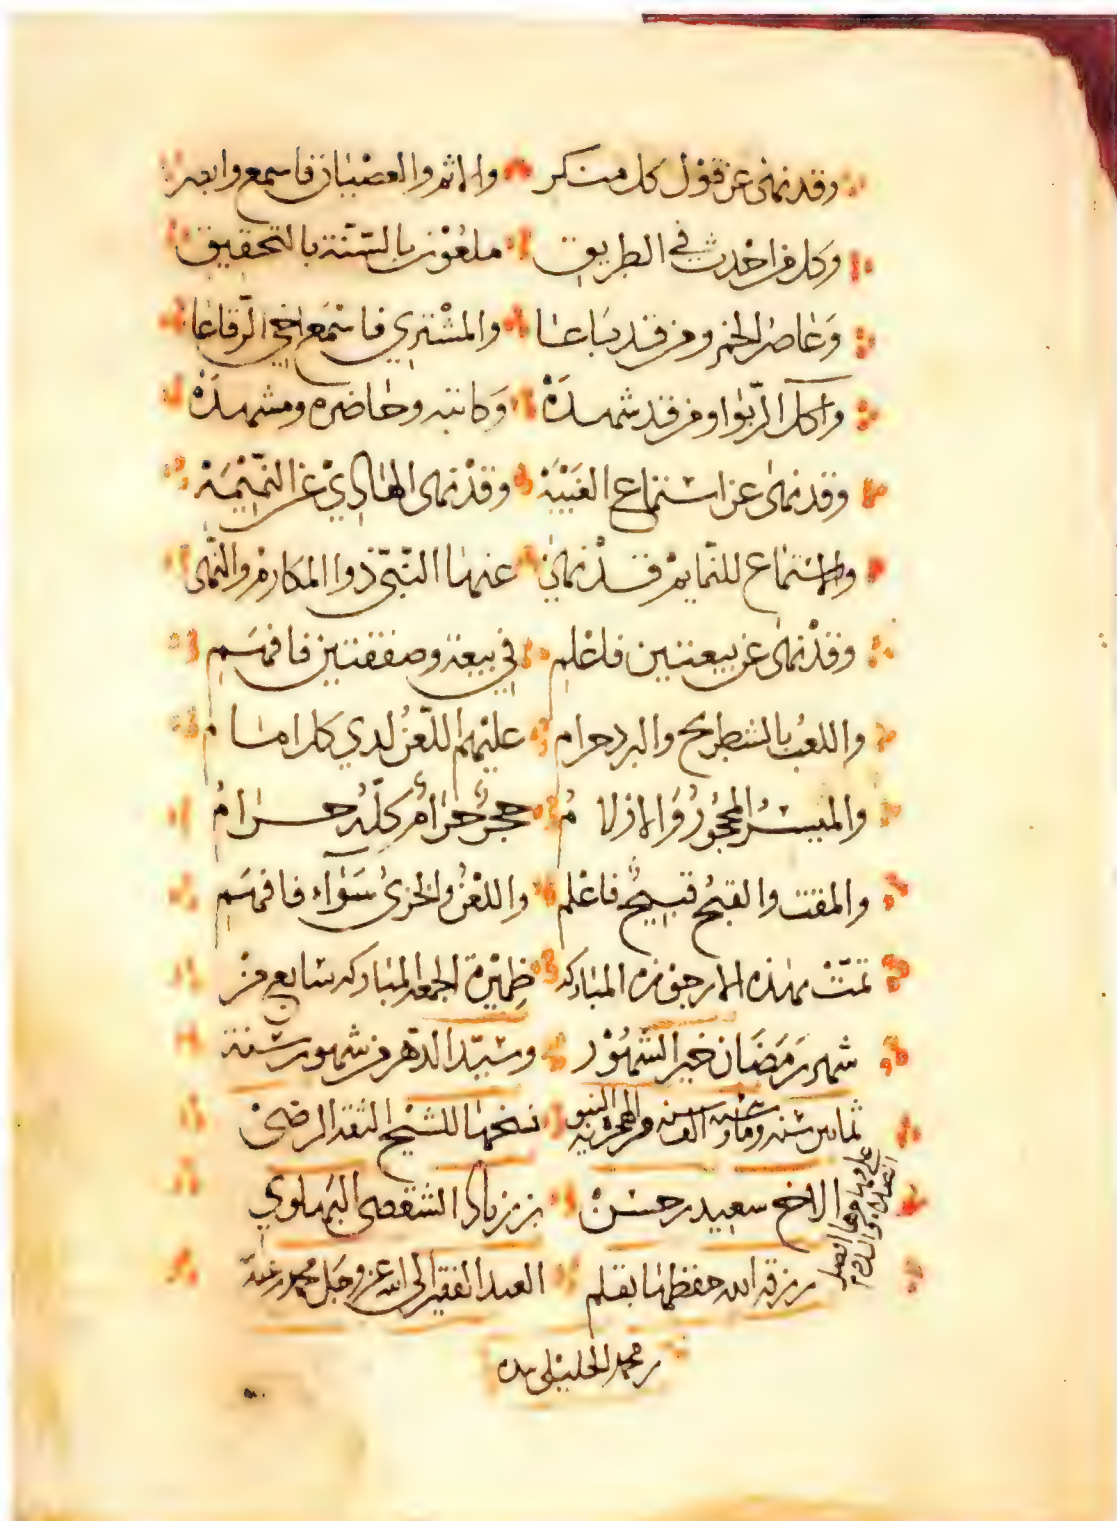 وقد نهى عن قول كل منكر والاثم والعصيان فاسمع وابصر
وكل من احدث في الطريق ملعون بالسنة بالتحقيق
وعاصر الخمر ومن قد باعا والمشتري فاسمع اخي الرقاعا
واكل الربوا ومن قد شهده وكاتبه وحاضره ومشهده
وقد نهى عن استماع الغيبة وقد نهى الهادي عن النميمة
والاستماع للنمايم قد نهى عنها النبي ذوا المكارم والنهى
وقد نهى عن بيعتين فاعلم في بيعة وصفقتين فافهم
واللعب بالشطرنج والنرد حرام عليهم اللعن لدي كل امام
والميسر المحجور والازلام حجر حرام كله حرام
والمقت والقبح قبيح فاعلم واللعن والخزي سوآء فافهم
تمت هذه الارجوزه المباركه ظهيرة الجمعه المباركه سابع من
شهر رمضان خير الشهور وسيد الدهر من شهور سنة
ثمان سنه ومائتين سنه والف سنه من الهجرة النبويه نسخها للشيخ الثقه الرضي
على مهاجرها افضل الصلاة والسلام
الاخ سعيد بن حسن بن زياد الشقصي البهلوي
رزقه الله حفظها بقلم العبد الفقير الى الله عز وجل محمد بن عبدالله
بن محمد الخليلي بيده